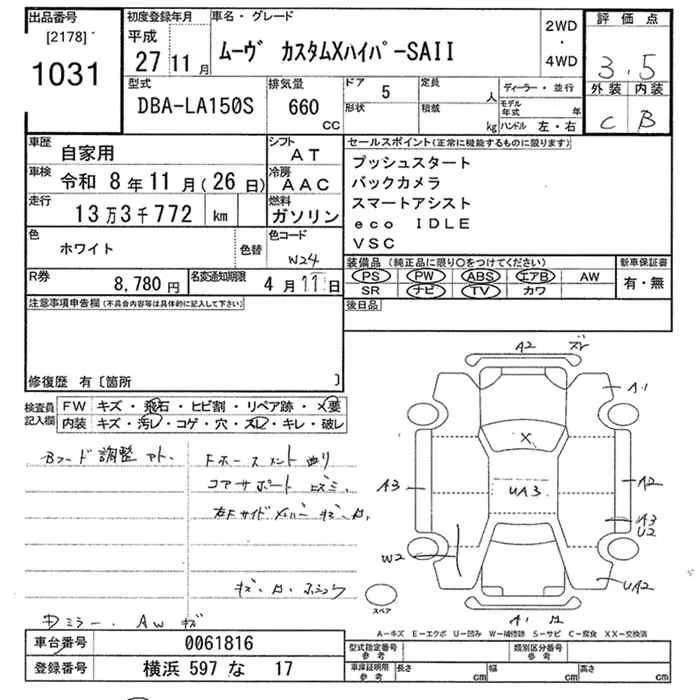 出品番号
[2178]
1031
初度登録年月
平成
27 11 月
車名・グレード
ムーヴ カスタムXハイパーSAII
2WD
・
4WD
評価点
3.5
外装 内装
C B
型式
DBA-LA150S
排気量
660
CC
ドア 5
形状
定員 人
積載 kg
ディーラー・並行
モデル年式 年
ハンドル 左・右
車歴 自家用
車検 令和 8年11月(26日)
走行 13万3千772 km
シフト AT
冷房 AAC
燃料 ガソリン
色 ホワイト
色替
色コード W24
R券 8,780円
名変通知期限 4月11日
セールスポイント(正常に機能するものに限ります)
プッシュスタート
バックカメラ
スマートアシスト
eco IDLE
VSC
装備品(純正品に限り○をつけてください)
PS PW ABS エアB AW
SR ナビ TV カワ
新車保証書
有・無
後日品
注意事項申告欄(不具合内容等は具体的に記入して下さい)
修復歴 有〔箇所 〕
検査員記入欄
FW キズ・飛石・ヒビ割・リペア跡・×要
内装 キズ・汚レ・コゲ・穴・スレ・キレ・破レ
Bフード調整
コアサポート
キズ
ミラー AW キズ
A2
A1
X
A3
UA3
A2
A3
U2
W2
UA2
A1
スペア
A-キズ E-エクボ U-凹み W-補修跡 S-サビ C-腐食 XX-交換済
車台番号 0061816
登録番号 横浜 597 な 17
型式指定番号 参考
類別区分番号 参考
車庫証明用 参考
長さ cm
幅 cm
高さ cm